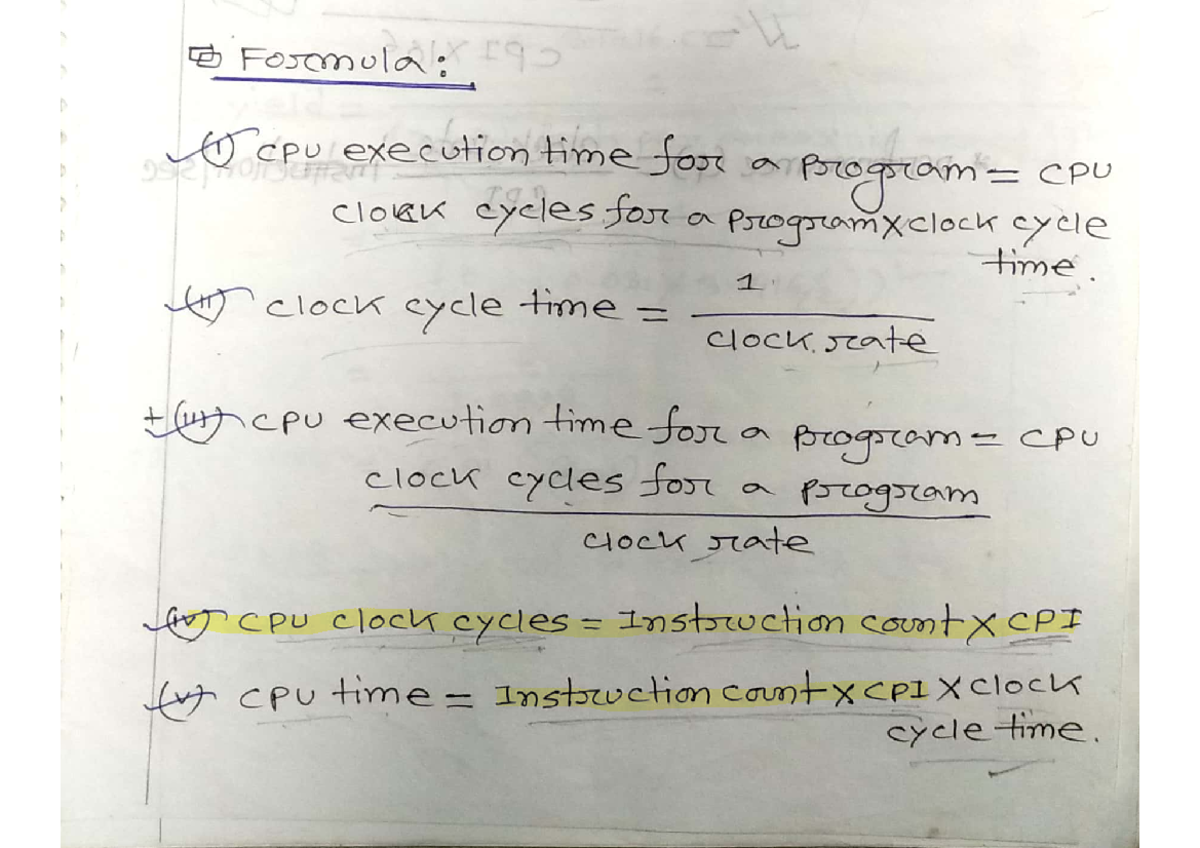 Formula:
(i) CPU execution time for a program = CPU
clock cycles for a program X clock cycle
time.
(ii) clock cycle time = 1
clock rate
+ (iii) CPU execution time for a program = CPU
clock cycles for a program
clock rate
(iv) CPU clock cycles = Instruction count X CPI
(v) CPU time = Instruction count X CPI X clock
cycle time.